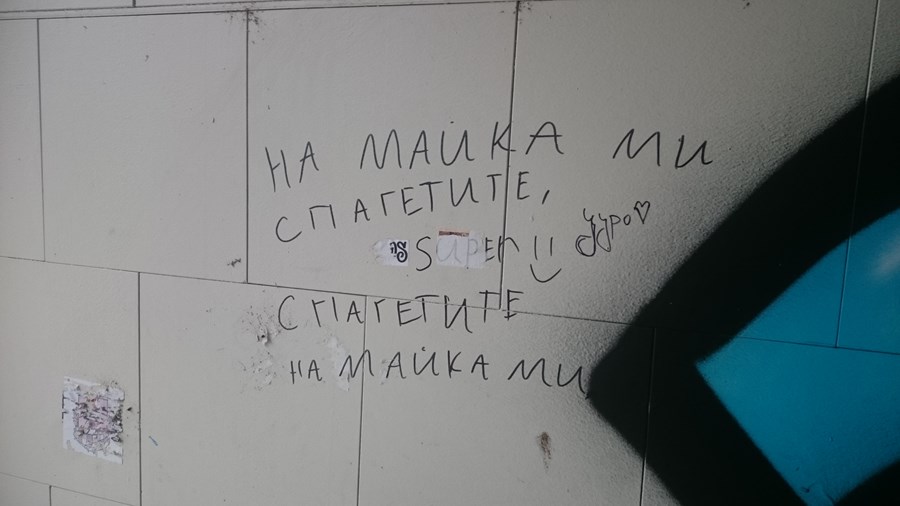 НА МАЙКА МИ
СПАГЕТИТЕ,
SUPER !!
СПАГЕТИТЕ
НА МАЙКА МИ